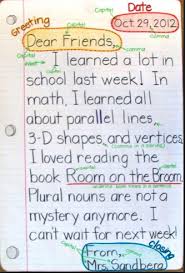 Capital
Date
Greeting
Oct. 29, 2012
Capital
comma
Dear Friends,
Capital
comma
I learned a lot in
school last week! In
math, I learned all
about parallel lines,
3-D shapes, and vertices.
I loved reading the
book Room on the Broom.
Plural nouns are not a
mystery anymore. I
can't wait for next week!
Closing
From,
Mrs. Sandberg